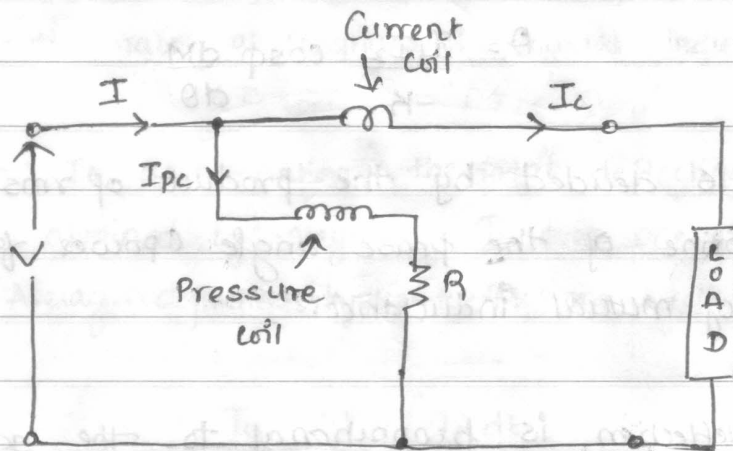 Current
coil
I
Ic
Ipc
V
Pressure
coil
R
LOAD